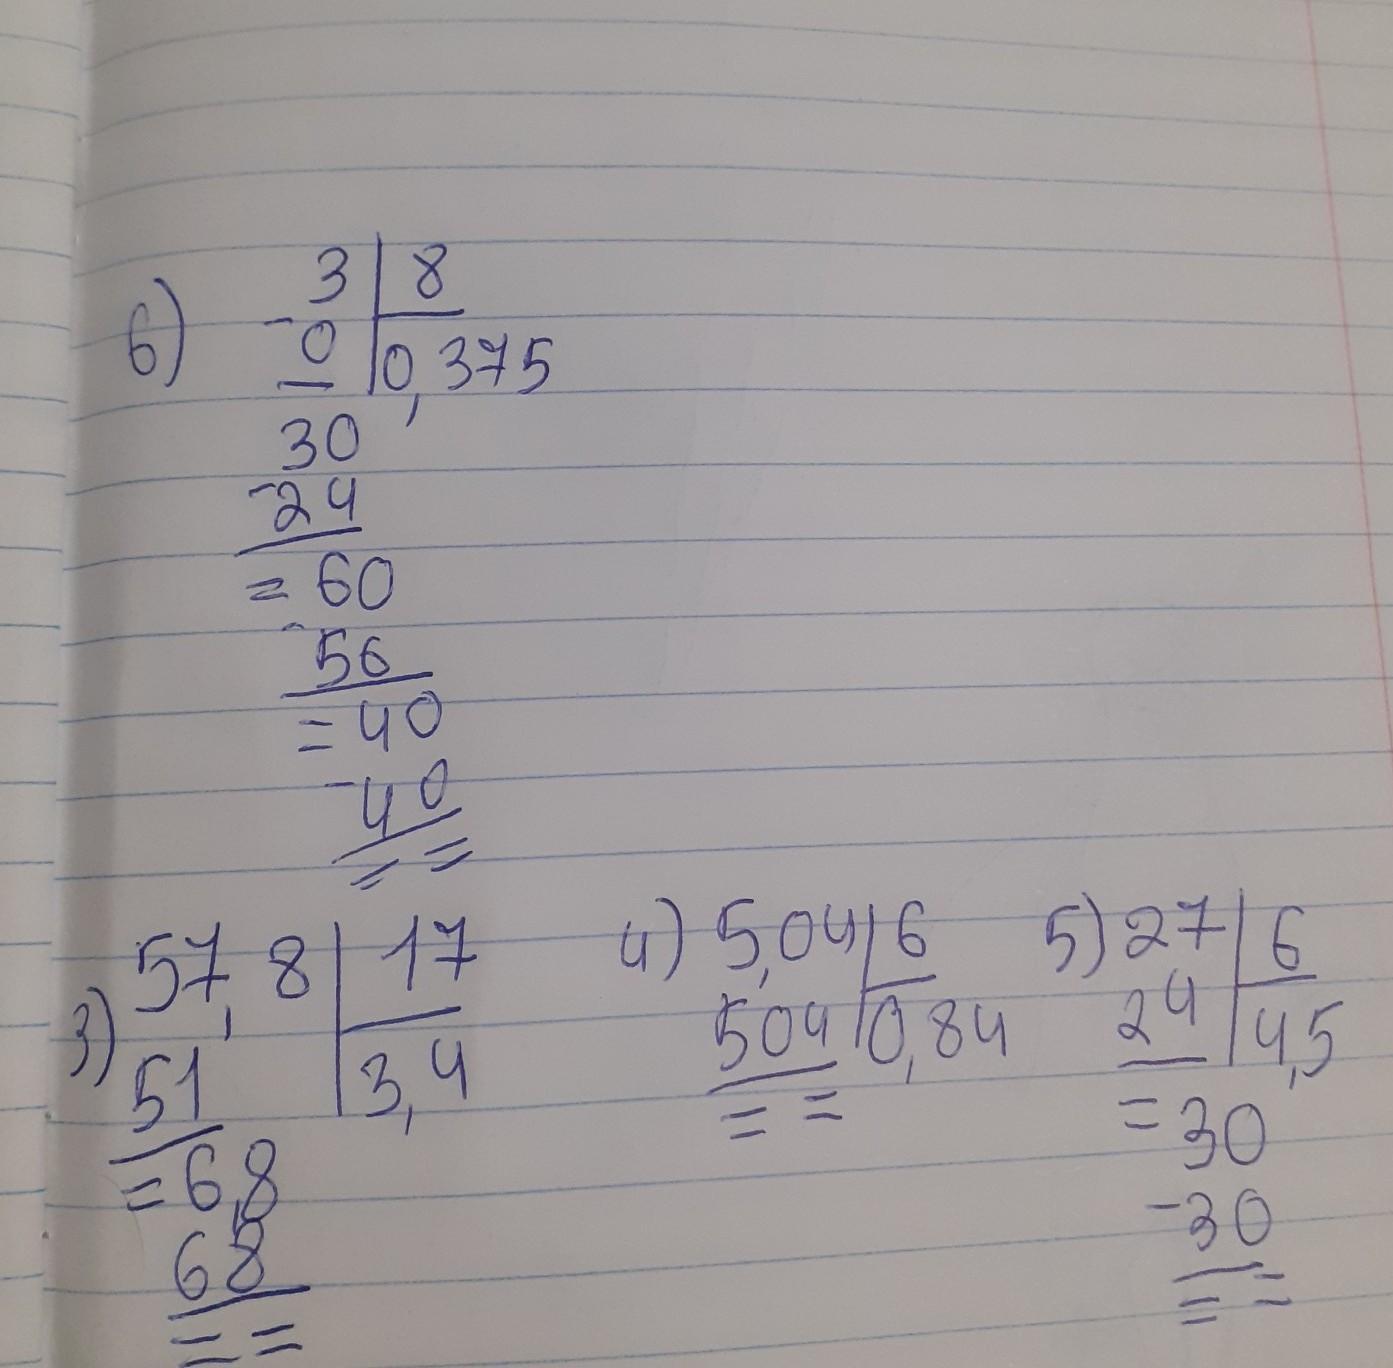 6) 3 | 8
- 0 | 0,375
30
-24
= 60
- 56
= 40
- 40
= =
3) 57,8 | 17
51 | 3,4
= 6,8
68
= =
4) 5,04 | 6
504 | 0,84
= =
5) 27 | 6
24 | 4,5
= 30
- 30
= =